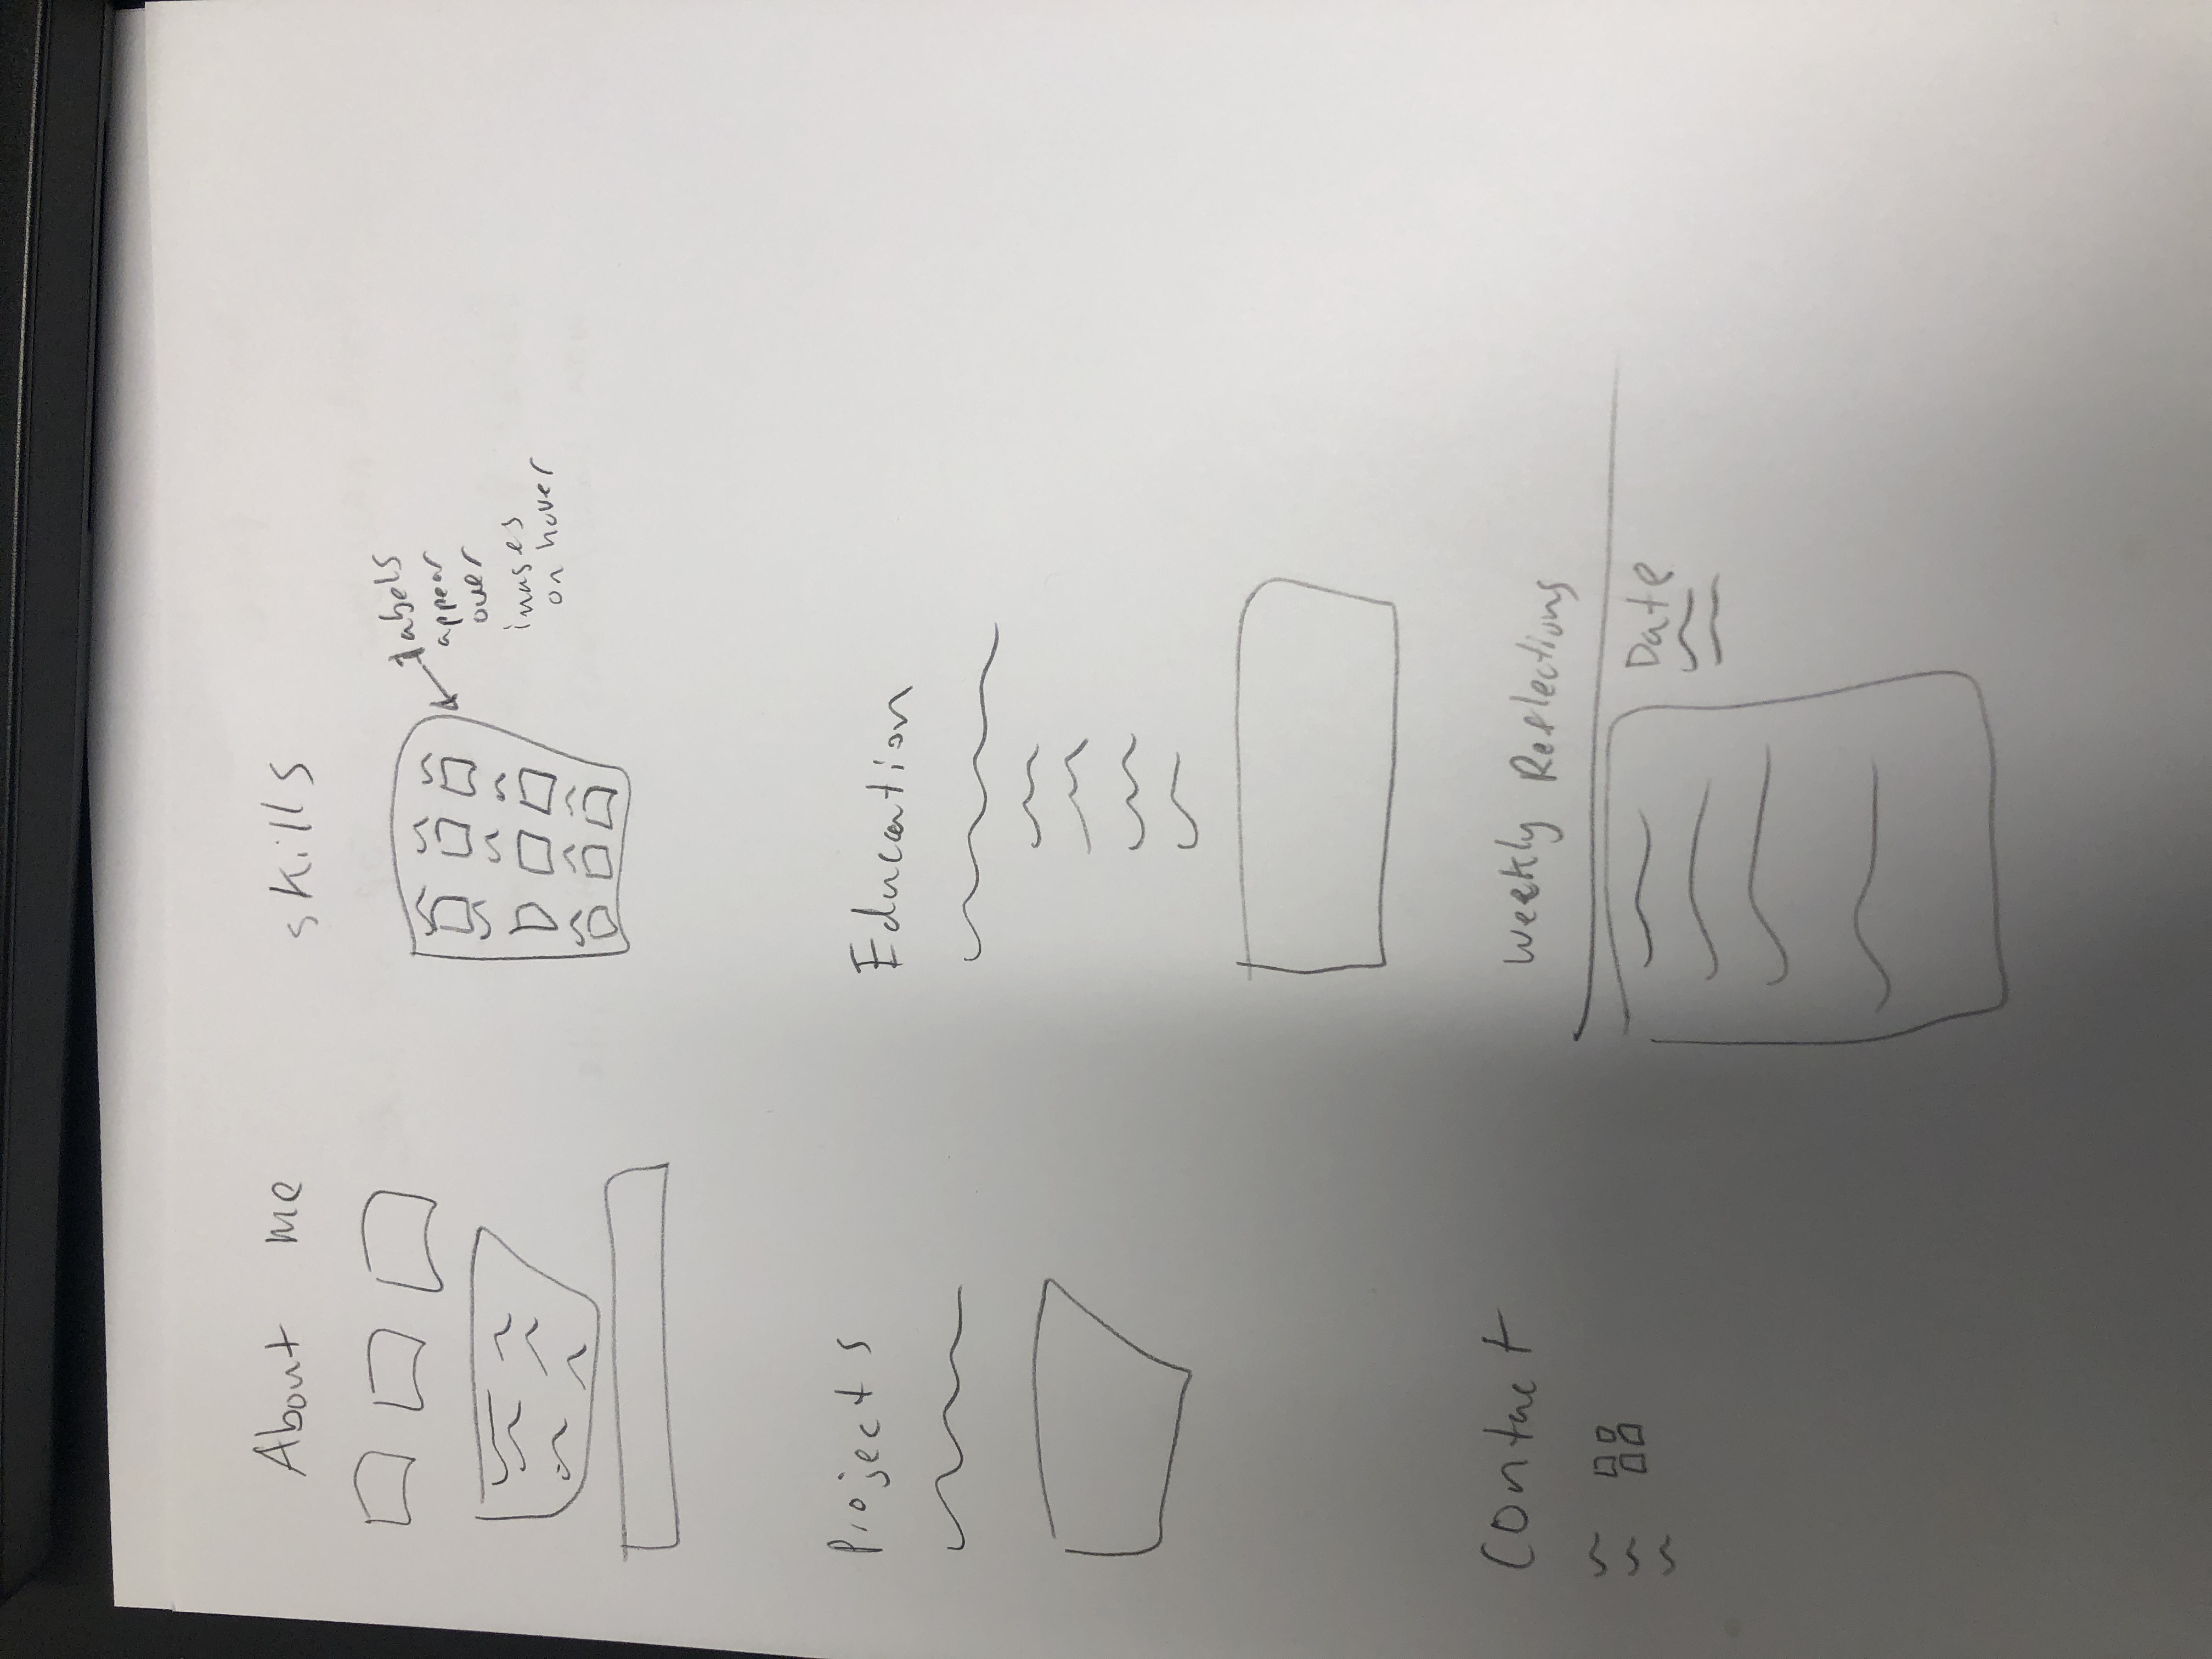 About me
skills
labels
appear
over
images
on hover
Projects
Education
Contact
Weekly Reflections
Date